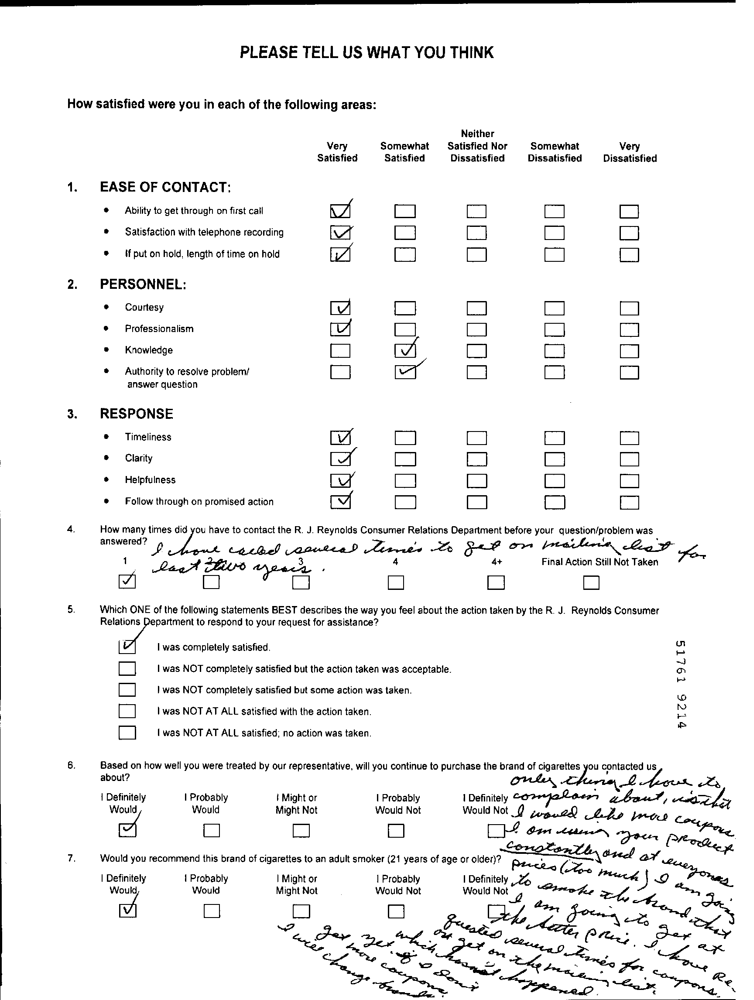 PLEASE TELL US WHAT YOU THINK
How satisfied were you in each of the following areas:
Very Satisfied Somewhat Satisfied Neither Satisfied Nor Dissatisfied Somewhat Dissatisfied Very Dissatisfied
1. EASE OF CONTACT:
• Ability to get through on first call
• Satisfaction with telephone recording
• If put on hold, length of time on hold
2. PERSONNEL:
• Courtesy
• Professionalism
• Knowledge
• Authority to resolve problem/
answer question
3. RESPONSE
• Timeliness
• Clarity
• Helpfulness
• Follow through on promised action
4. How many times did you have to contact the R. J. Reynolds Consumer Relations Department before your question/problem was
answered? I have called several times to get on mailing list for
last two years.
1 2 3 4 4+ Final Action Still Not Taken
5. Which ONE of the following statements BEST describes the way you feel about the action taken by the R. J. Reynolds Consumer
Relations Department to respond to your request for assistance?
I was completely satisfied.
I was NOT completely satisfied but the action taken was acceptable.
I was NOT completely satisfied but some action was taken.
I was NOT AT ALL satisfied with the action taken.
I was NOT AT ALL satisfied; no action was taken.
51761 9214
6. Based on how well you were treated by our representative, will you continue to purchase the brand of cigarettes you contacted us
about?
I Definitely Would I Probably Would I Might or Might Not I Probably Would Not I Definitely Would Not
7. Would you recommend this brand of cigarettes to an adult smoker (21 years of age or older)?
I Definitely Would I Probably Would I Might or Might Not I Probably Would Not I Definitely Would Not
only thing I have to
complain about, is that
I would like more coupons
I am using your product
constantly and at everyones
prices (too much) I am going
to smoke the brand that
I am going to get at
the better price. I have re-
quested several times for coupons.
or get on the mailing list.
which hasn't happened.
yet if I don't
get more coupons
I will change brands.